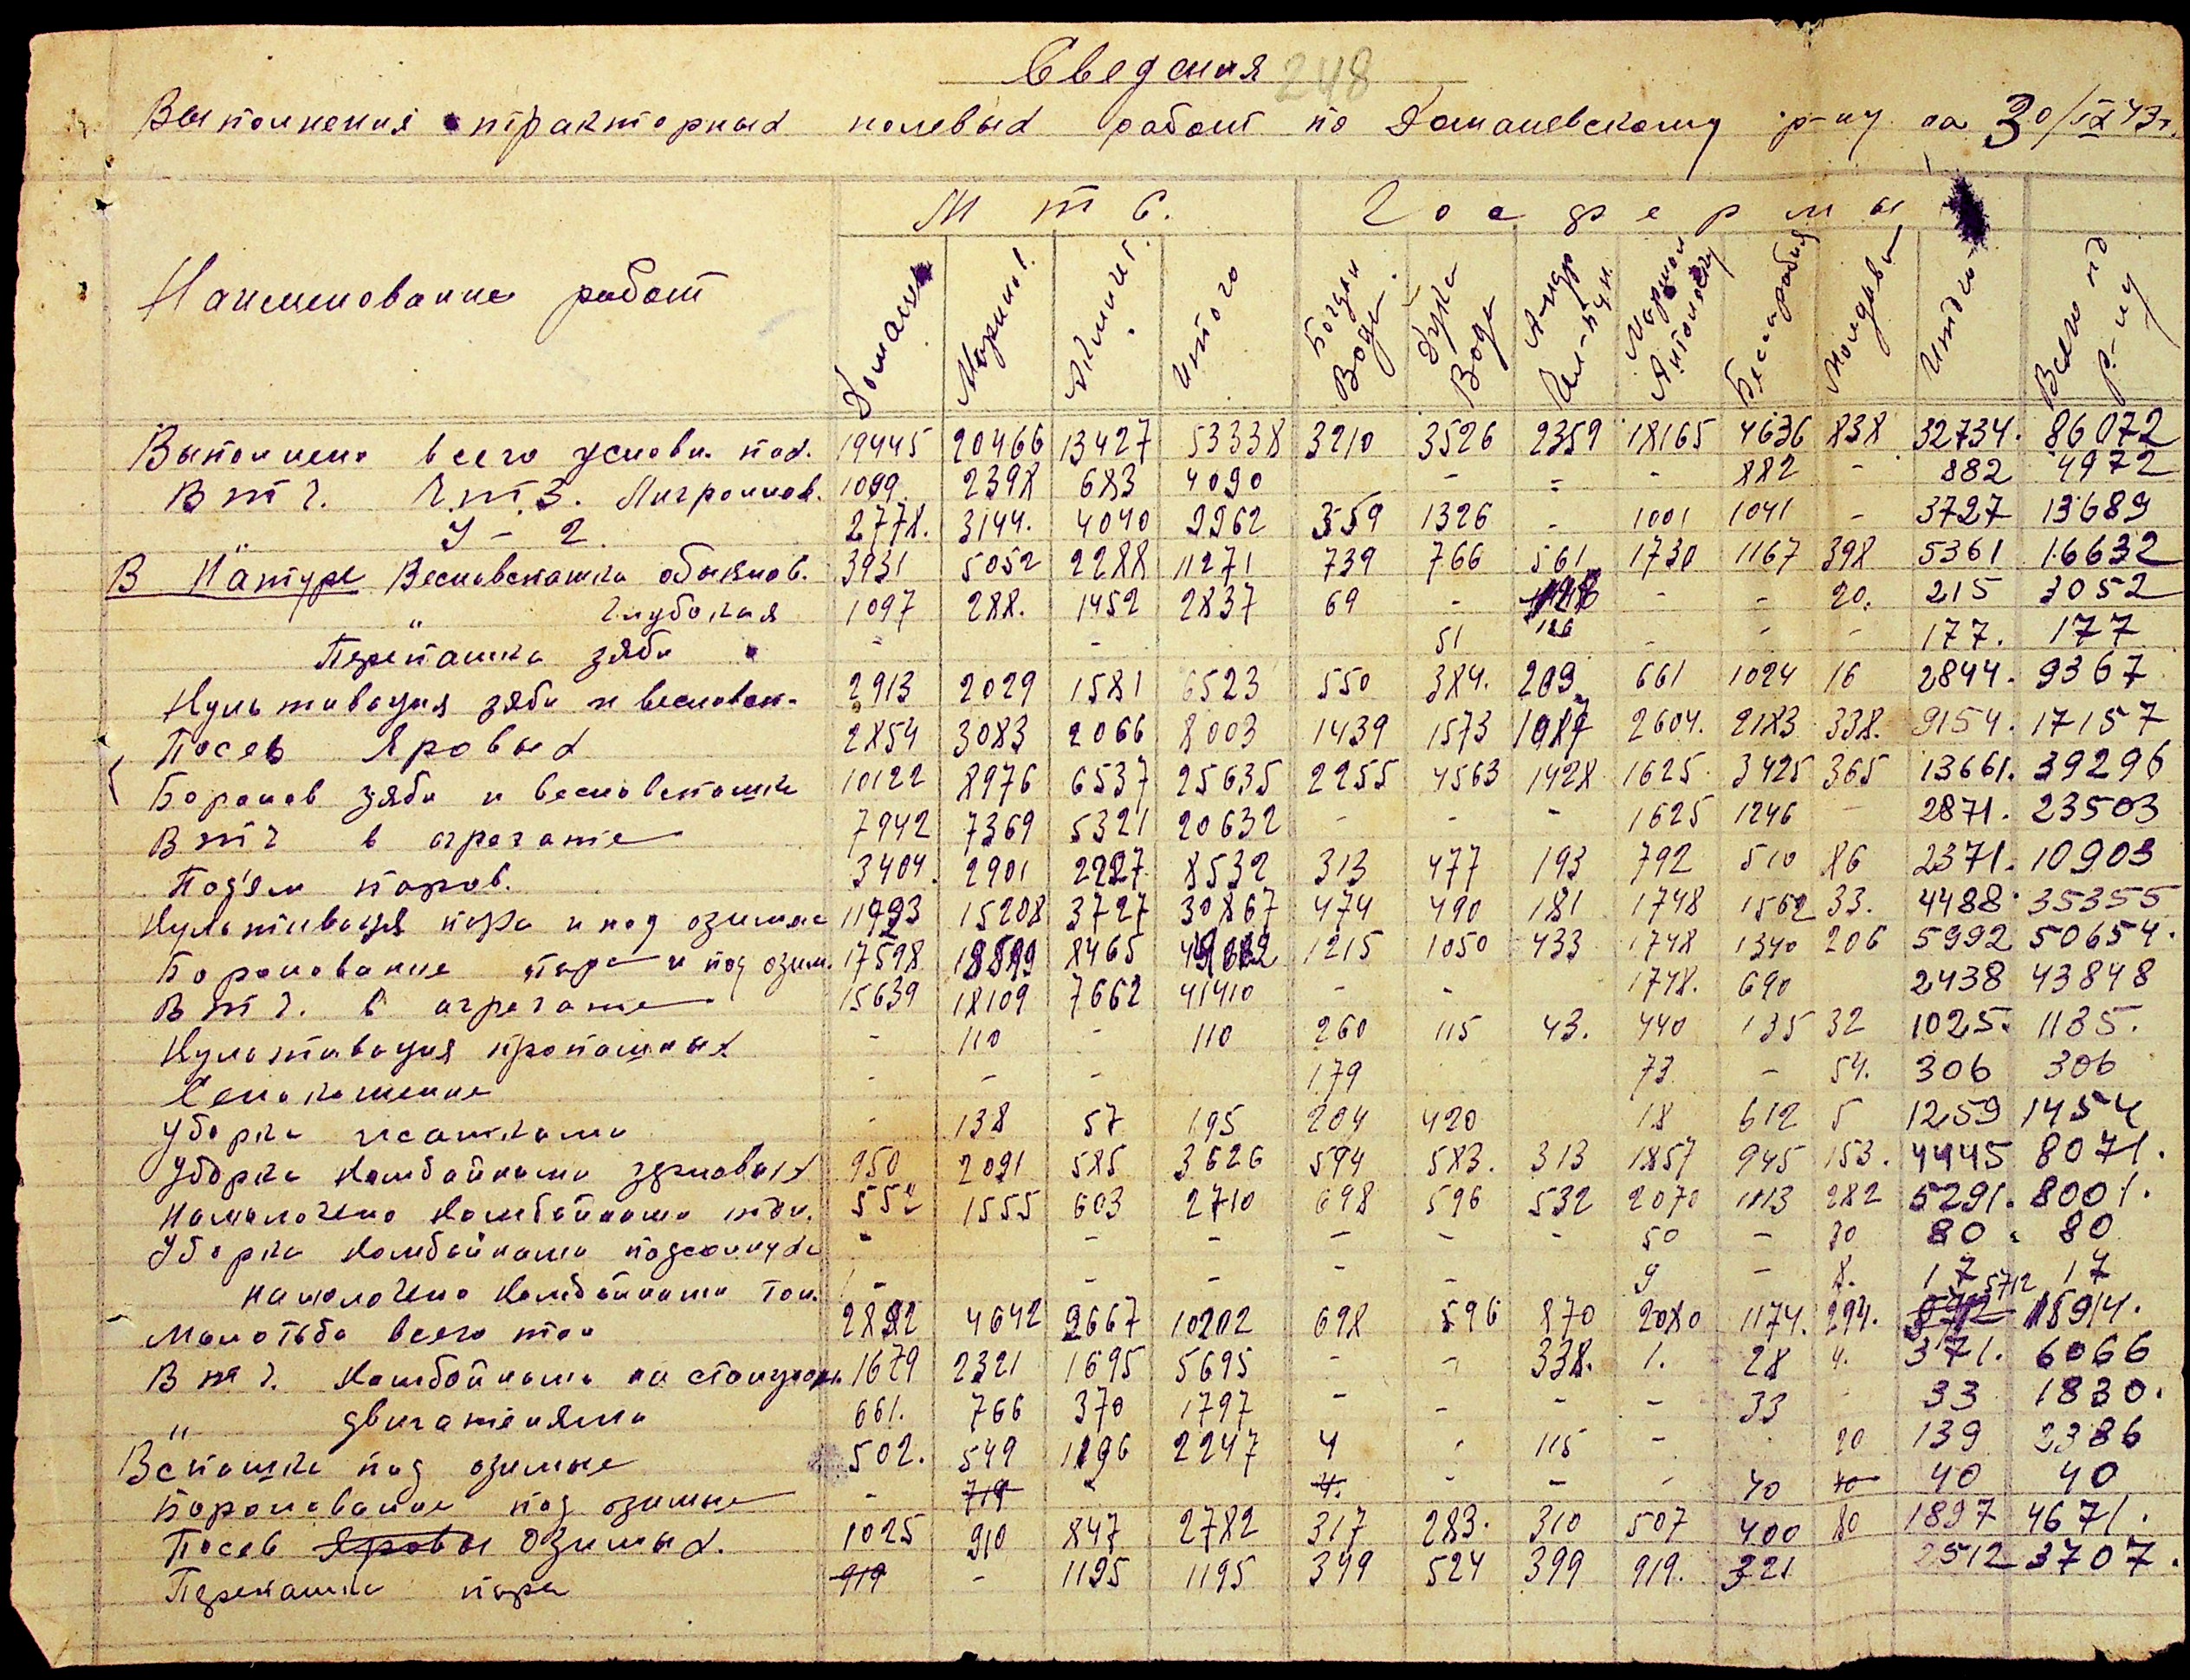 Сведения 248
Выполнения тракторных полевых работ по Доманевскому р-ну на 30/IX 43г.
Наименование работ
М т с.
Госфермы
Доманев Маринов. Акмичет. Итого Богдан Воде. Дука Воде А-мдр Маршал Антонеску Бессарабия Молдова Итого Всего по р-ну
Выполнено всего условн. пах. 19445 20466 13427 53338 3210 3526 2359 18165 4636 838 32734. 86072
В т ч. Ч.Т.З. Лигроинов. 1099. 2398 683 4090 - - - 882 - 882 4972
У - 2 2778. 3144. 4040 9962 359 1326 - 1001 1041 - 3727 13689
В Натуре Весновспашка обыкнов. 3931 5052 2288 11271 739 766 561 1730 1167 398 5361 16632
" Глубокая 1097 288. 1452 2837 69 - 126 - - 20. 215 3052
Перепашка зяби - - 51 126 - - - 177. 177
Культивация зяби и весновсп. 2913 2029 1581 6523 550 384. 209. 661 1024 16 2844. 9367
Посев Яровых 2854 3083 2066 8003 1439 1573 1987 2604. 2183 338. 9154. 17157
Боронов зяби и весновспашки 10122 8976 6537 25635 2255 4563 1428 1625 3425 365 13661. 39296
В т ч в агрегате 7942 7369 5321 20632 - - - 1625 1246 - 2871. 23503
Под'ем паров. 3404. 2901 2227 8532 313 477 193 792 510 86 2371. 10903
Культивация пара и под озимые 11993 15208 3727 30867 474 490 181 1748 1562 33. 4488. 35355
Боронование пара и под озим. 17598 18599 8465 1215 1050 433 1748 1340 206 5992 50654.
В т ч. в агрегате 15639 18109 7662 41410 - - 1748. 690 2438 43848
Культивация пропашных - 110 - 110 260 115 43. 440 135 32 1025. 1135.
Сенокошение - - - 179 73 - 54. 306 306
Уборка жатками - 138 57 195 204 420 18 612 5 1259 1454
Уборка комбайнами зерновых 950 2091 585 3626 594 583. 313 1857 945 153. 4445 8071.
Намолочено комбайнами тон. 552 1555 603 2710 698 596 532 2070 1113 282 5291. 8001.
Уборка комбайнами подсолнуха - - - - - - 50 - 30 80. 80
намолочено комбайнами тон. - - - - - 9 - 8. 17 17
Молотьба всего тон 2892 4642 2667 10202 698 596 870 2080 1174. 294. 5712 15914.
В т ч. Комбайнами на стационар 1679 2321 1695 5695 - - 338. 1. 28 4. 371. 6066
" двигателями 661. 766 370 1797 - - - - 33 33 1830.
Вспашка под озимые 502. 549 1196 2247 4 - 115 - 20 139 2386
Боронование под озимые - 719 - 4. - - - 40 40 40 40
Посев Яровы Озимых. 1025 910 847 2782 317 283. 310 507 400 80 1897 4671.
Перепашка пара 919 - 1195 1195 349 524 399 919. 321 2512 3707.